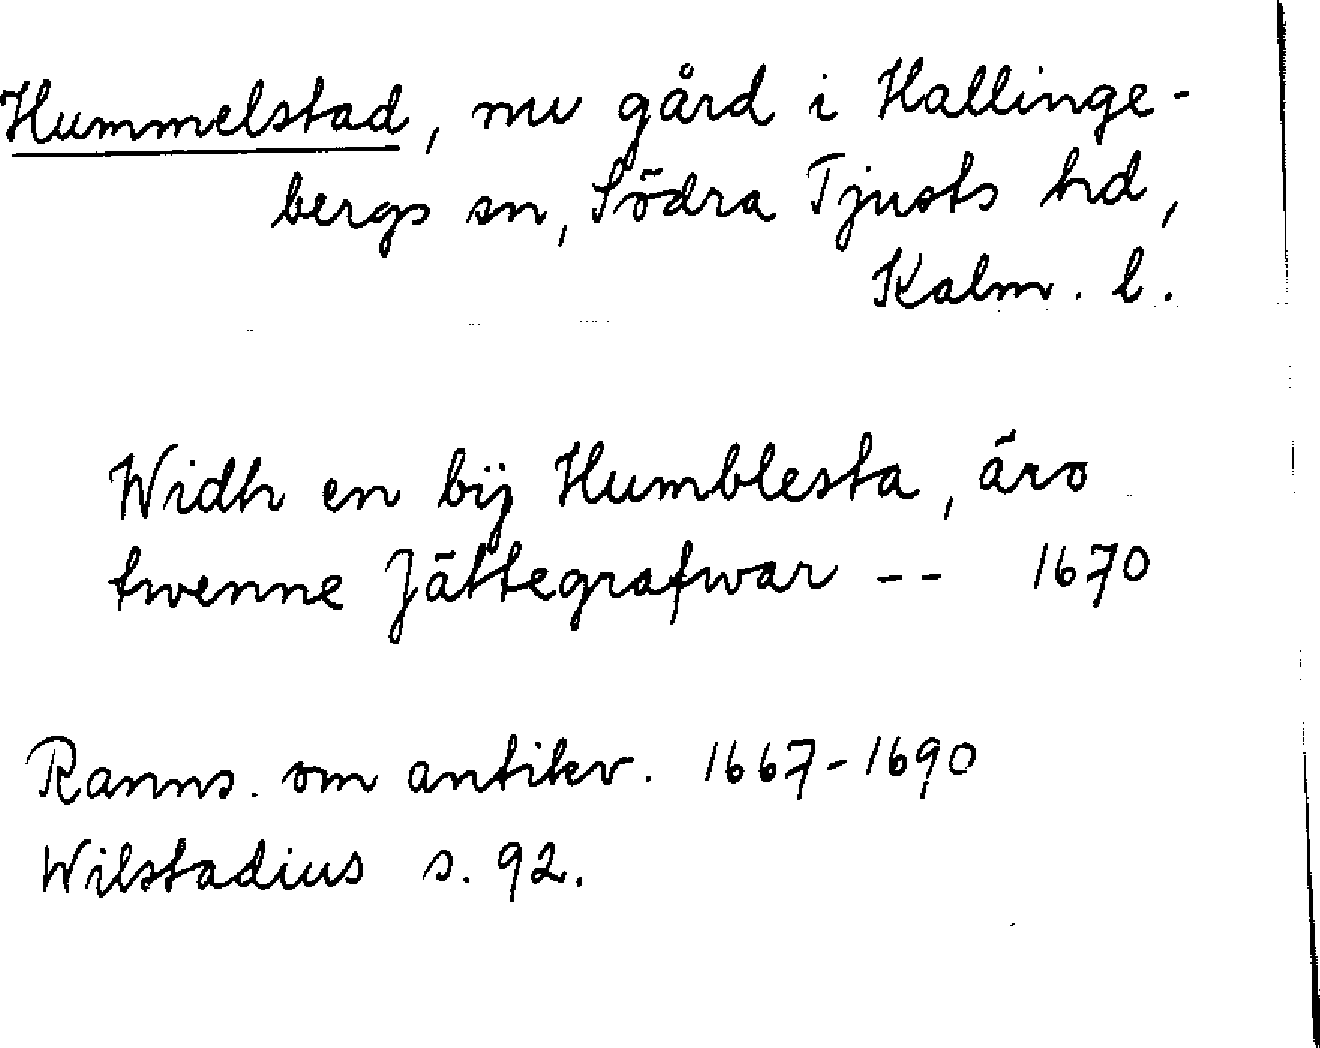 Hummelstad, nu gård i Hallinge-
bergs sn, Södra Tjusts hd,
Kalm. l.
Widh en bÿ Humblesta, äro
twenne Jättegrafwar -- 1670
Ranns. om antikv. 1667-1690
Wilstadius s. 92.